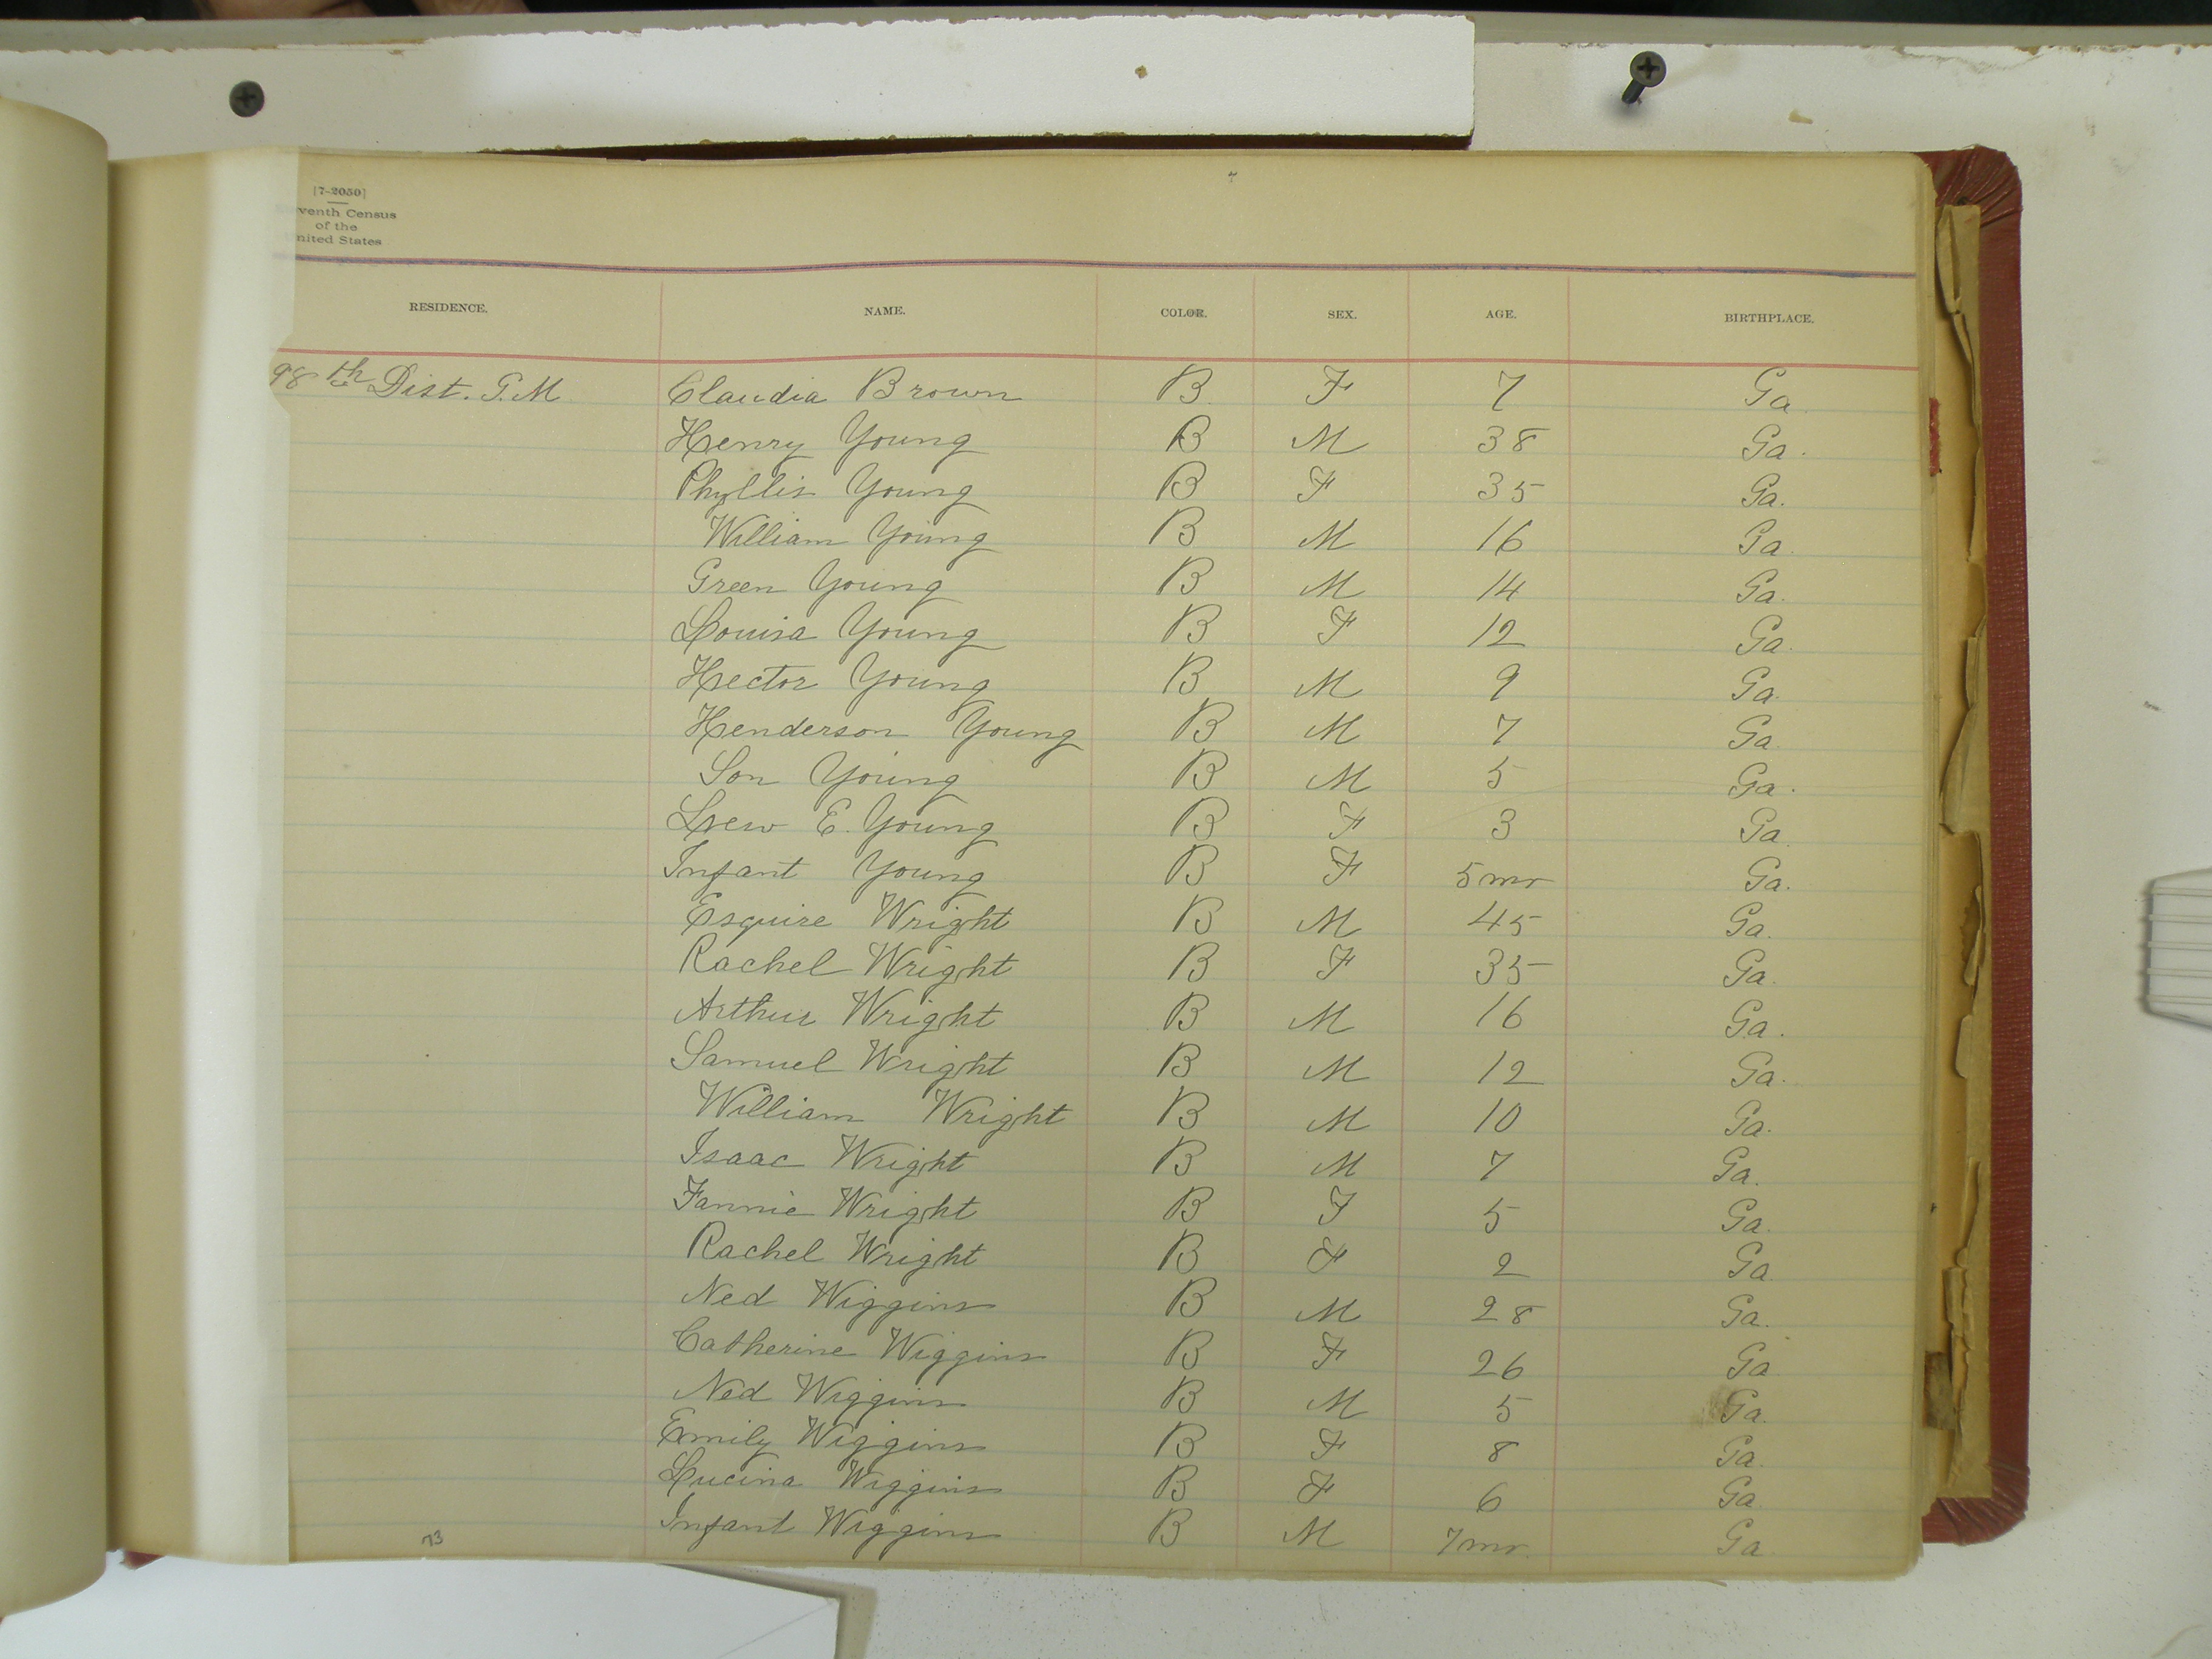 [7-2050]
venth Census
of the
nited States
RESIDENCE. NAME. COLOR. SEX. AGE. BIRTHPLACE.
98th Dist. G.M Claudia Brown B F 7 Ga.
Henry Young B M 38 Ga.
Phyllis Young B F 35 Ga.
William Young B M 16 Ga.
Green Young B M 14 Ga.
Louisa Young B F 12 Ga.
Hector Young B M 9 Ga.
Henderson Young B M 7 Ga.
Son Young B M 5 Ga.
Lew E. Young B F 3 Ga.
Infant Young B F 5 mo Ga.
Esquire Wright B M 45 Ga.
Rachel Wright B F 35 Ga.
Arthur Wright B M 16 Ga.
Samuel Wright B M 12 Ga.
William Wright B M 10 Ga.
Isaac Wright B M 7 Ga.
Fannie Wright B F 5 Ga.
Rachel Wright B F 2 Ga
Ned Wiggins B M 28 Ga.
Catherine Wiggins B F 26 Ga
Ned Wiggins B M 5 Ga.
Emily Wiggins B F 8 Ga.
Lucina Wiggins B F 6 Ga.
Infant Wiggins B M 7 mo. Ga
73